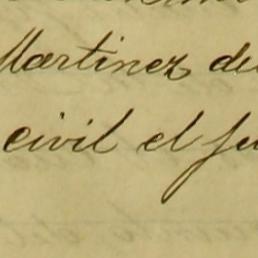 Martinez de
civil el Ju